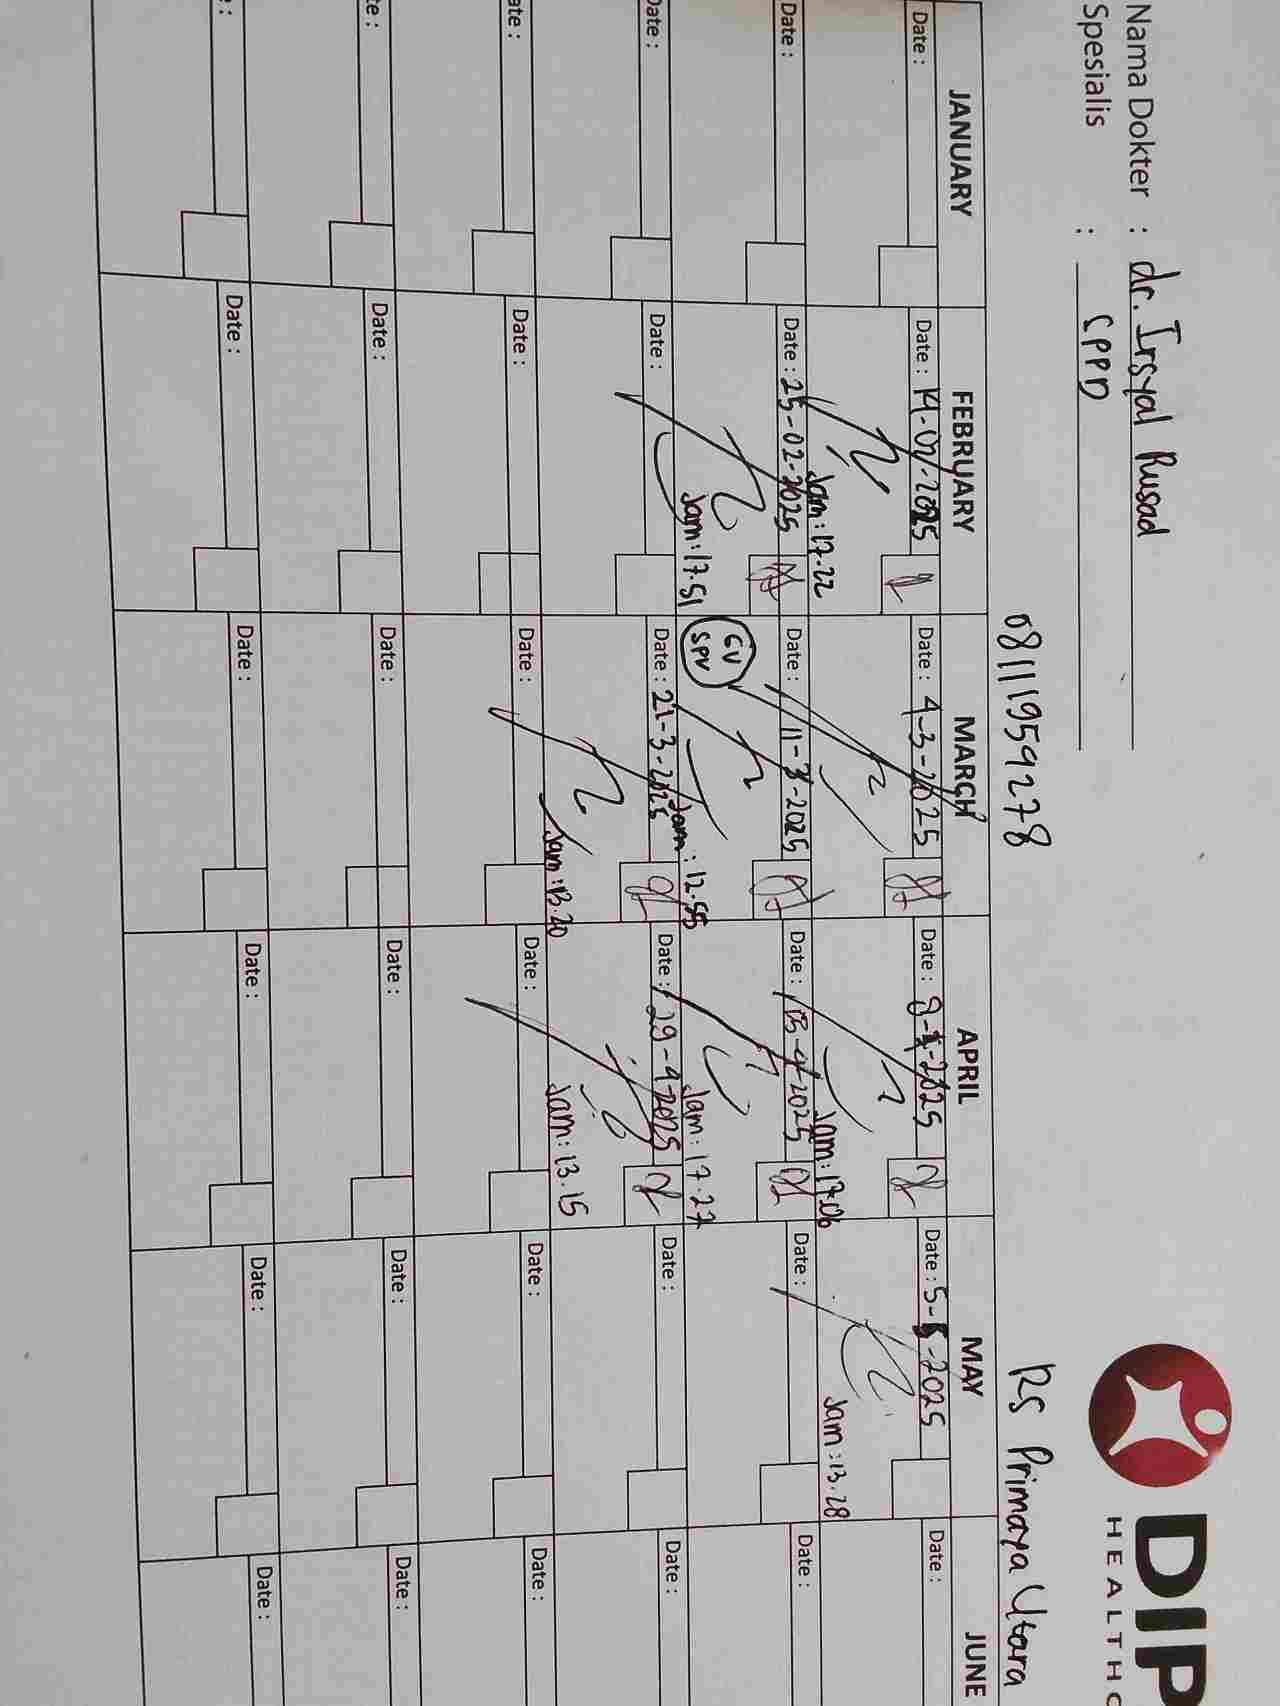 Nama Dokter : dr. Irsyal Rusad
Spesialis : SPPD
DIP
HEALTHC
08111959278
RS Primaya Utara
JANUARY FEBRUARY MARCH APRIL MAY JUNE
Date : Date : 14-02-2025 Date : 4-3-2025 Date : 8-4-2025 Date : 5-5-2025 Date :
Jam : 17.22 Jam : 17.06 Jam : 13.28
Date : Date : 25-02-2025 Date : 11-3-2025 Date : 15-4-2025 Date : Date :
Jam : 17.51 GV SPV Jam : 12.55 Jam : 17.27
Date : Date : Date : 21-3-2025 Date : 29-4-2025 Date : Date :
Jam : 13.20 Jam : 13.15
ate : Date : Date : Date : Date : Date :
te : Date : Date : Date : Date : Date :
e : Date : Date : Date : Date : Date :